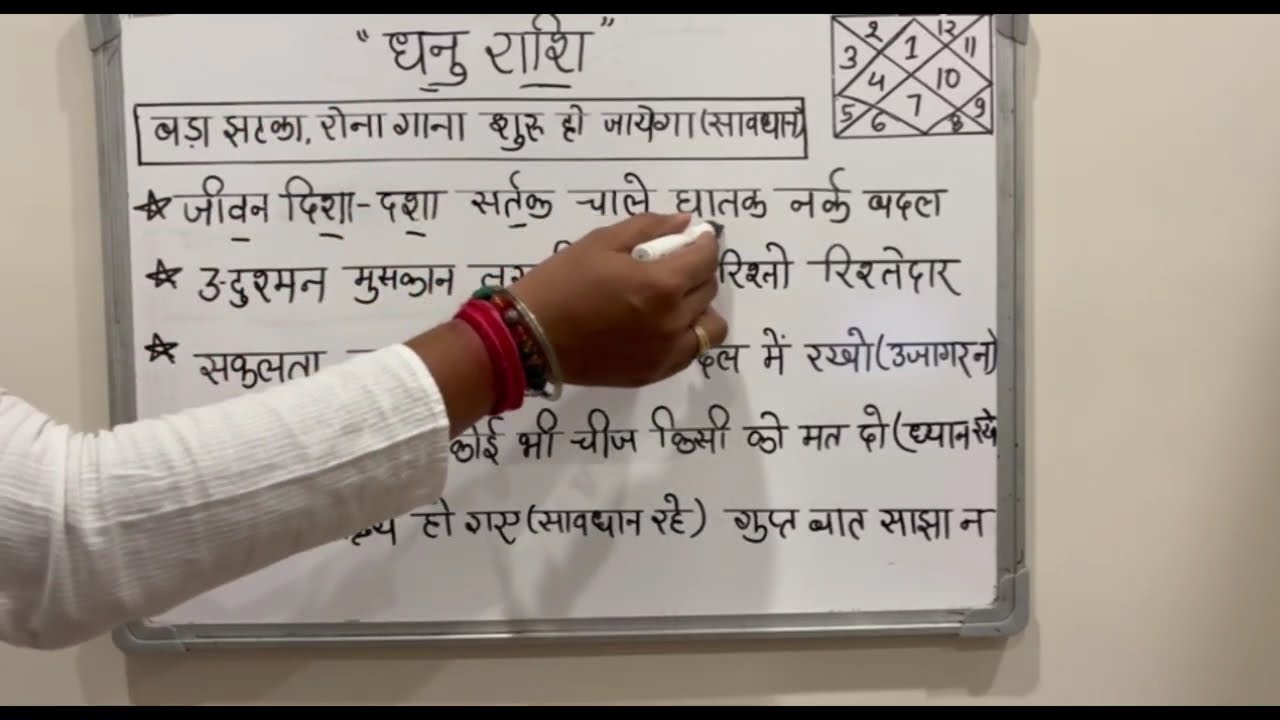 "धनु राशि"
2 12
3 1 11
4 10
5 7 9
6 8
बड़ा झटका, रोना गाना शुरू हो जायेगा (सावधान)
☆ जीवन दिशा-दशा सर्तक चाले घातक नर्क बदल
☆ 3-दुश्मन मुसकान रिश्तो रिश्तेदार
☆ सफलता में रखो (उजागर न)
कोई भी चीज किसी को मत दो (ध्यान रखे
हो गए (सावधान रहे) गुप्त बात साझा न